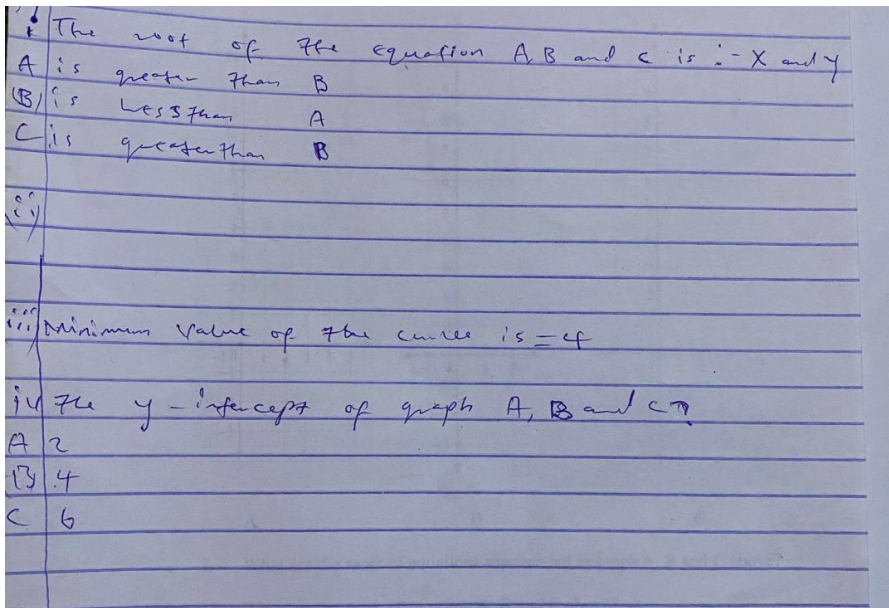 i The root of the equation A, B and C is :- X and y
A is greater than B
(B) is Less than A
C is greater than B
ii)
iii) Minimum value of the curve is = 4
iv The y-intercept of graph A, B and C?
A 2
B 4
C 6